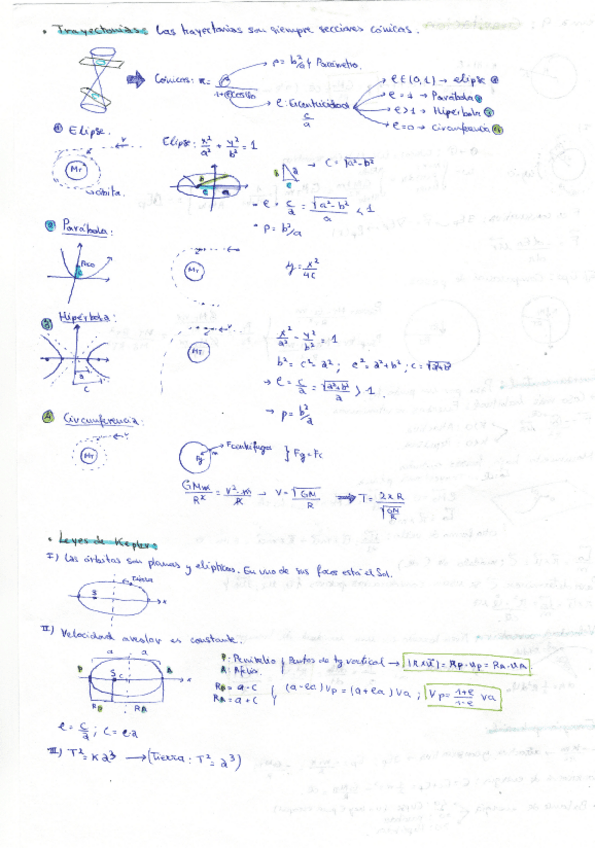 • Trayectorias: Las trayectorias son siempre secciones cónicas.
Cónicas: r = ρ/(1+e cosθ)
ρ = b²/a ; Parámetro.
e: Excentricidad
c/a
e ∈ (0,1) → elipse ①
e = 1 → Parábola ②
e > 1 → Hipérbola ③
e = 0 → Circunferencia ④
① Elipse.
v
M_T
órbita.
Elipse: x²/a² + y²/b² = 1
b
c
a
→ c = √(a²-b²)
• e = c/a = √(a²-b²)/a < 1
• p = b²/a
② Parábola:
Foco
c
v
M_T
y = x²/4c
③ Hipérbola:
a
c
v
M_T
x²/a² - y²/b² = 1
b² = c² - a² ; c² = a² + b² ; c = √(a²+b²)
→ e = c/a = √(a²+b²)/a > 1.
→ p = b²/a
④ Circunferencia:
v
M_T
Fcentrífuga
Fg
m
} Fg = Fc
GMm/R² = v²·m/R → v = √(GM/R) ⟹ T = 2πR/√(GM/R)
• Leyes de Kepler:
I) Las órbitas son planas y elípticas. En uno de sus focos está el Sol.
Tierra
S
x
II) Velocidad areolar es constante.
a a
P S c A x
R_P R_A
P: Perihelio } Puntos de tg vertical → |R×v| = R_P·v_P = R_A·v_A
A: Afelio.
R_P = a - c
R_A = a + c
} (a-ea) v_P = (a+ea) v_A ; V_P = (1+e)/(1-e) v_A
e = c/a ; c = e·a
III) T² = k a³ → (Tierra: T² = a³)